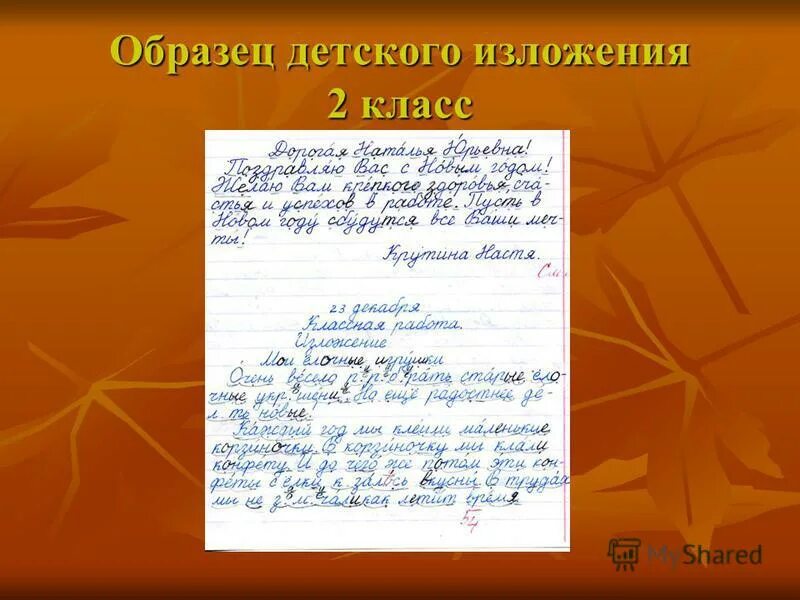 Образец детского изложения
2 класс
Дорогая Наталья Юрьевна!
Поздравляю Вас с Новым годом!
Желаю Вам крепкого здоровья, сча-
стья и успехов в работе. Пусть в
Новом году сбудутся все Ваши меч-
ты!
Крутина Настя.
23 декабря
Классная работа.
Изложение
Мои ёлочные игрушки
Очень весело старые ёло-
чные Но ещё радостнее де-
новые!
Каждый год мы клеили маленькие
корзиночку. В корзиночку мы клали
конфету. И до чего же потом эти кон-
феты с ёлки вкусны. В трудах
мы не как летит время
5/4
MyShared